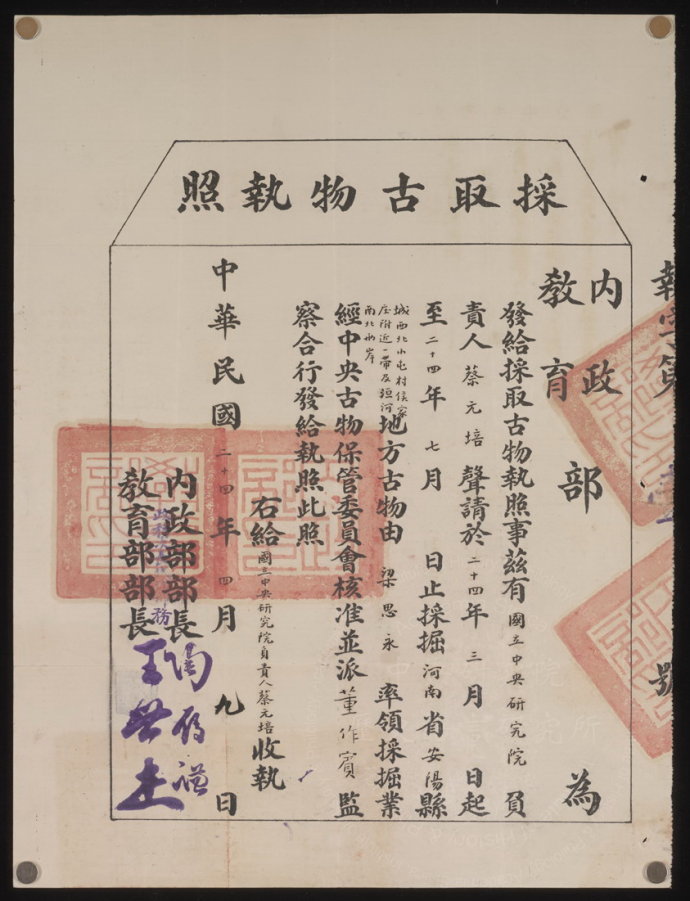 採取古物執照
執字第壹號
內政
教育部為
發給採取古物執照事茲有國立中央研究院負
責人蔡元培聲請於二十四年三月 日起
至二十四年七月 日止採掘河南省安陽縣
城西北小屯村侯家
庄附近一帶及洹河
南北兩岸
地方古物由梁思永率領採掘業
經中央古物保管委員會核准並派董作賓監
察合行發給執照此照
右給國立中央研究院負責人蔡元培收執
內政部部長陶履謙
教育部部長王世杰
中華民國二十四年四月九日